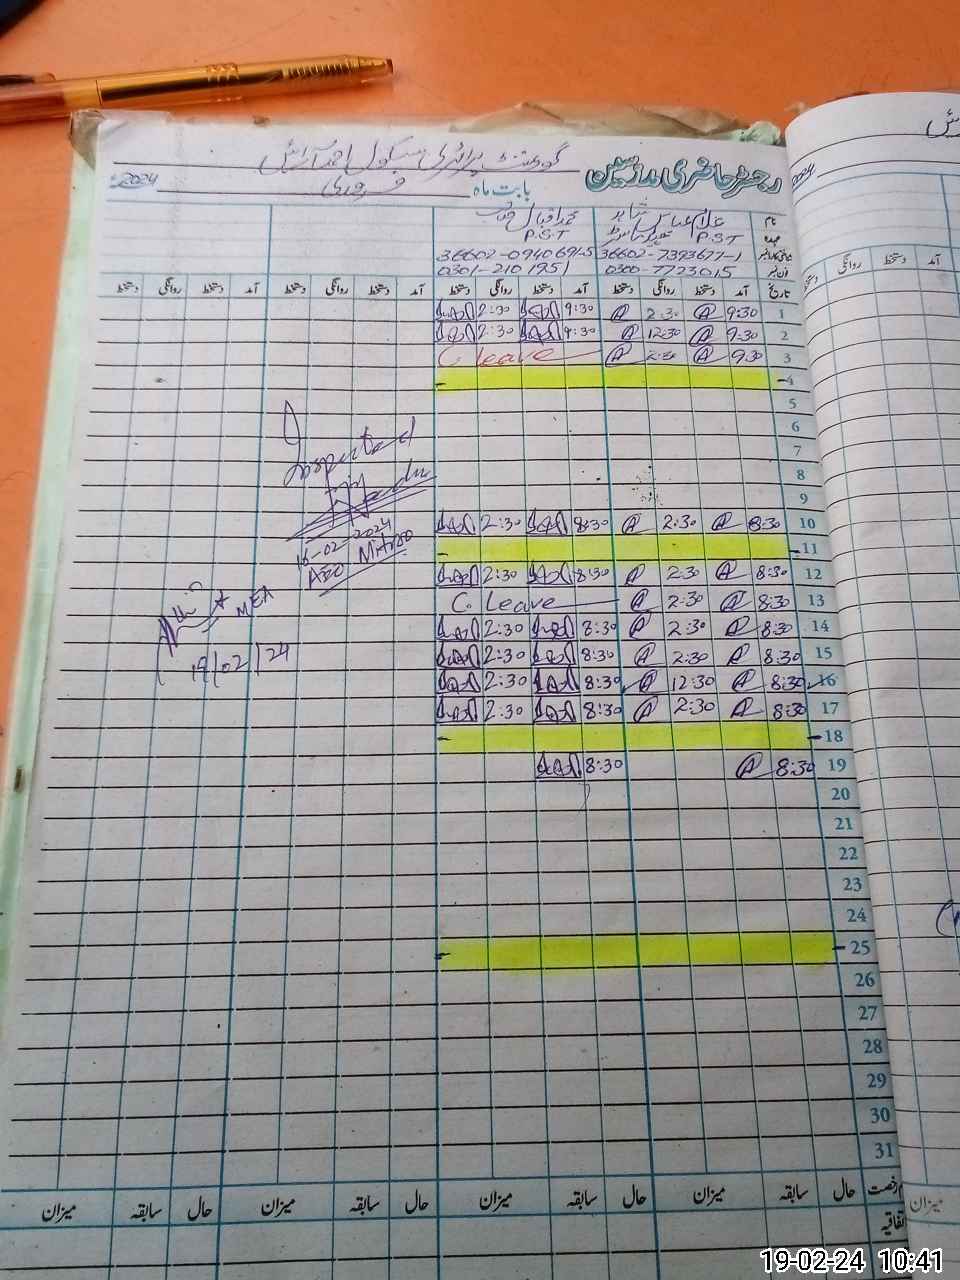 گورنمنٹ پرائمری سکول احمد آرائیں
رجسٹر حاضری مدرسین
بابت ماہ فروری 2024ء
نام غلام عباس شاہد محمد اقبال
عہدہ P.S.T P.S.T
36602-7393677-1 36602-0940691-5
0300-7723015 0301-2101951
تاریخ آمد دستخط روانگی دستخط آمد دستخط روانگی دستخط آمد دستخط روانگی دستخط آمد دستخط روانگی دستخط
1 9:30 2:30 9:30 2:30
2 9:30 12:30 9:30 2:30
3 9:30 2:30 C. leave
4
5
6
7
8
9
10 8:30 2:30 8:30 2:30
11
12 8:30 2:30 8:30 2:30
13 8:30 2:30 C. Leave
14 8:30 2:30 8:30 2:30
15 8:30 2:30 8:30 2:30
16 8:30 12:30 8:30 2:30
17 8:30 2:30 8:30 2:30
18
19 8:30 8:30
20
21
22
23
24
25
26
27
28
29
30
31
Inspected
16-02-2024
AEO
MEA
19/02/24
حال سابقہ میزان حال سابقہ میزان حال سابقہ میزان حال سابقہ میزان
اتفاقیہ
2024
روانگی آمد
میزان
19-02-24 10:41